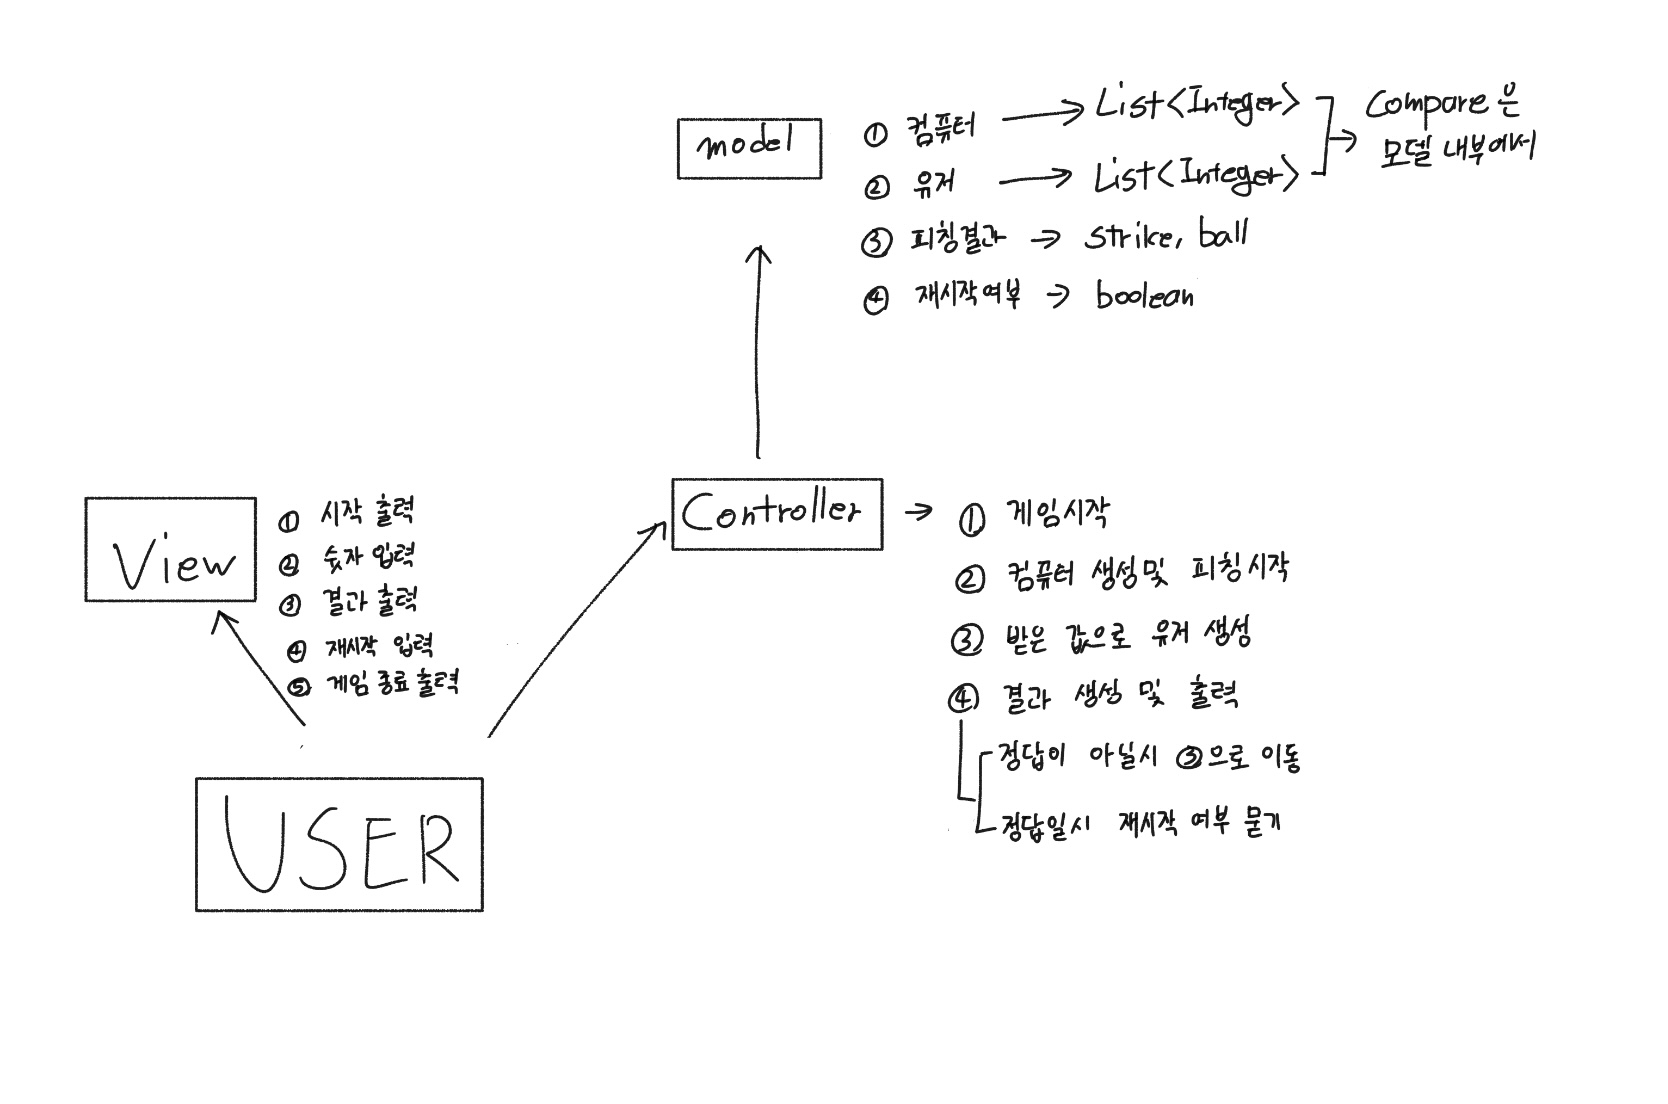 model
① 컴퓨터 → List<Integer>
② 유저 → List<Integer>
→ Compare 은
모델 내부에서
③ 피칭결과 → strike, ball
④ 재시작여부 → boolean
View
① 시작 출력
② 숫자 입력
③ 결과 출력
④ 재시작 입력
⑤ 게임 종료 출력
Controller →
① 게임시작
② 컴퓨터 생성및 피칭시작
③ 받은 값으로 유저 생성
④ 결과 생성 및 출력
정답이 아닐시 ③으로 이동
정답일시 재시작 여부 묻기
USER